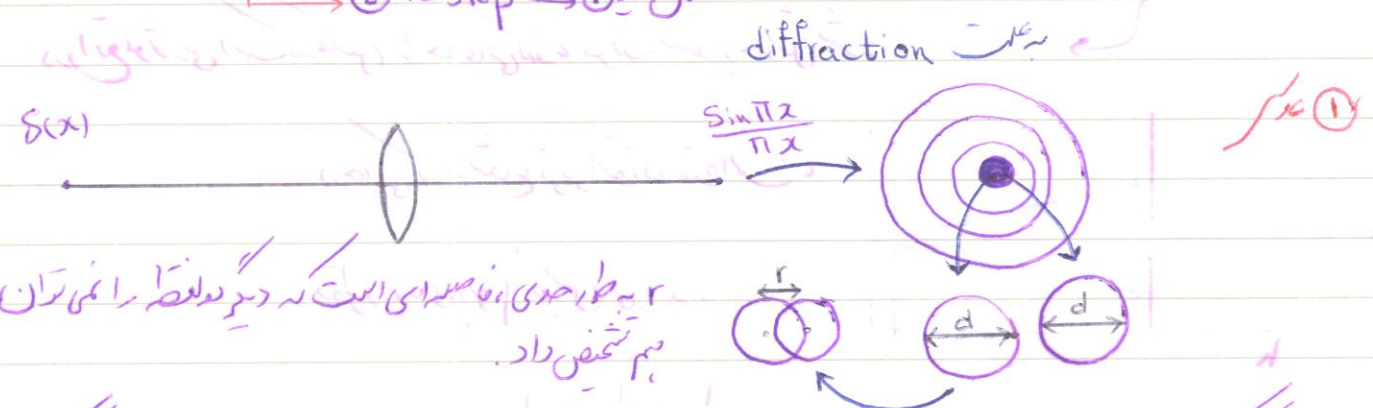 به علت diffraction
① عدسی
δ(x)
sin πx / πx
r
d
d
r به طور حدی، فاصله‌ای است که دیگر دو نقطه را نمی‌توان
هم تشخیص داد.